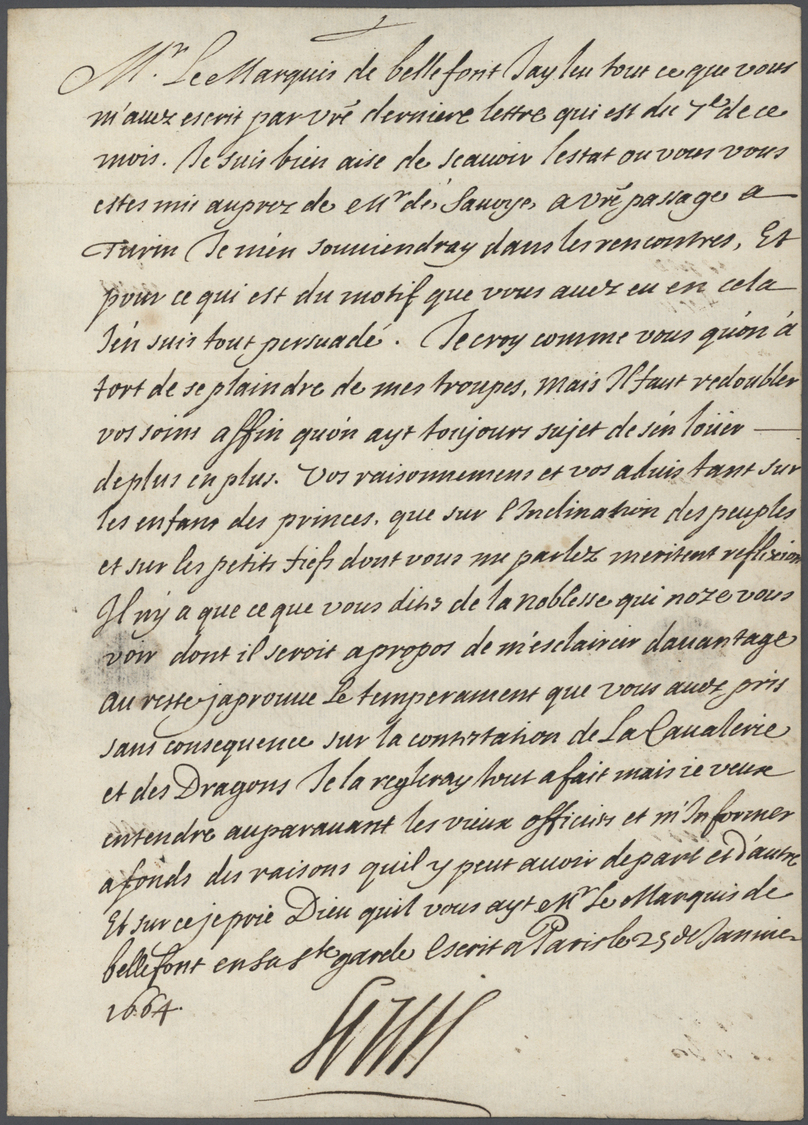 Mr. Le Marquis de bellefont Jay leu tout ce que vous
m'auez escrit par vrē derniere lettre qui est du 7e de ce
mois. Je suis bien aise de scauoir l'estat ou vous vous
estes mis auprez de Mr de Sauoye a vrē passage a
Turin Je m'en souuiendray dans les rencontres, Et
pour ce qui est du motif que vous auez eu en cela
J'en suis tout persuadé. Je croy comme vous qu'on à
tort de se plaindre de mes troupes, mais Il faut redoubler
vos soins affin qu'on ayt toujours sujet de s'en loüer —
de plus en plus. Vos raisonnemens et vos aduis tant sur
les enfans des princes, que sur l'Inclination des peuples
et sur les petits fiefs dont vous me parlez meritent reflexion
Il n'y a que ce que vous dites de la noblesse qui n'oze vous
voir dont il seroit apropos de m'esclaircir dauantage
au reste j'aprouue Le temperament que vous auez pris
sans consequence sur la contestation de La Caualerie
et des Dragons Je la regleray tout a fait mais ie veux
entendre auparauant les vieux officiers et m'Informer
a fonds des raisons qu'il y peut auoir de part et d'autre
Et sur ce je prie Dieu qu'il vous ayt Mr Le Marquis de
bellefont en sa ste garde Escrit a Paris le 25 de Januier
1664.
Louis